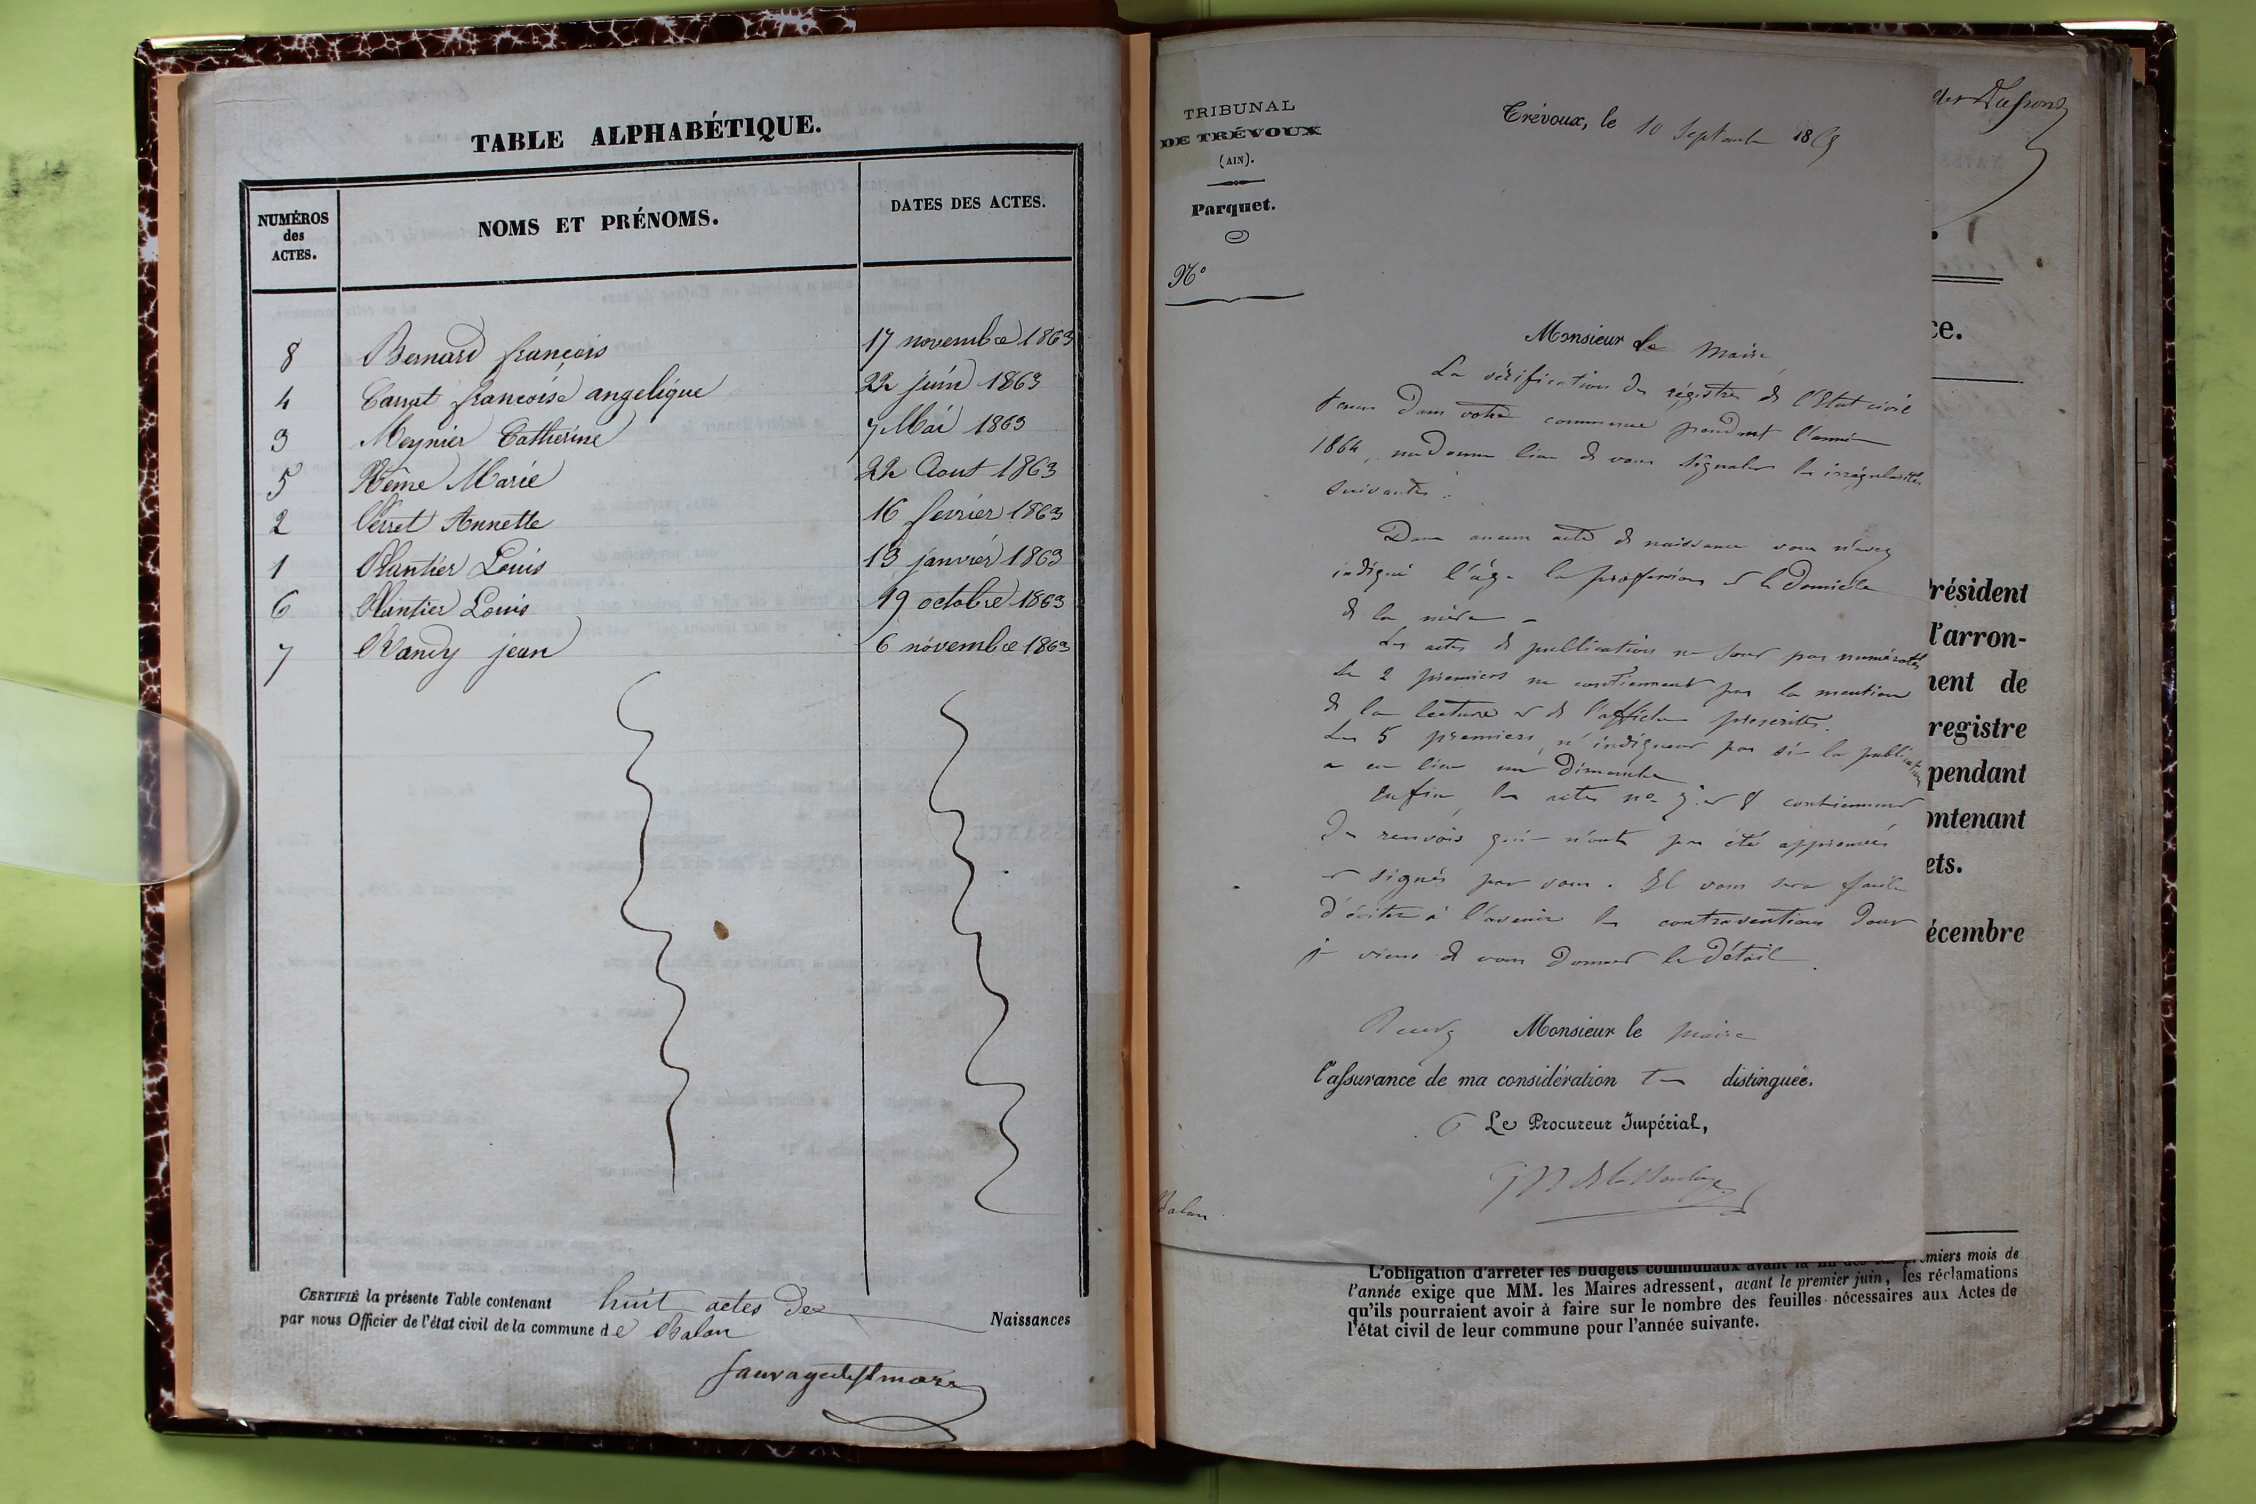 TABLE ALPHABÉTIQUE.
NUMÉROS des ACTES.
NOMS ET PRÉNOMS.
DATES DES ACTES.
8 Bernard françois 17 novembre 1863
4 Carret francoise angelique 22 juin 1863
3 Meynier Catherine 7 Mai 1863
5 Marie 22 Aout 1863
2 Annette 16 fevrier 1863
1 Plantier Louis 13 janvier 1863
6 Plantier Louis 19 octobre 1863
7 jean 6 novembre 1863
CERTIFIÉ la présente Table contenant huit actes de Naissances
par nous Officier de l'état civil de la commune de Balan
TRIBUNAL
DE TRÉVOUX
(AIN).
Parquet.
N°
Trévoux, le 10 Septembre 186
Monsieur le Maire
La vérification des régistres de l'Etat civil
tenus dans votre commune pendant l'année
1864, me donne lieu de vous signaler les irrégularités
suivantes :
Dans aucun acte de naissance vous n'avez
indiqué l'âge la profession et le domicile
de la mère –
Les actes de publication ne sont pas numérotés
Les 2 premiers ne contiennent pas la mention
de la lecture et de l'affiche prescrites.
Les 5 premiers, n'indiquent pas si la publication
a eu lieu un Dimanche
Enfin, les actes nos 7 et 8 contiennent
des renvois qui n'ont pas été approuvés
et signés par vous. Il vous sera facile
d'éviter à l'avenir les contraventions dont
je viens de vous donner le détail.
Recevez Monsieur le Maire
l'assurance de ma considération très distinguée.
Le Procureur Impérial,
Balan
ce.
Président
l'arron-
ment de
registre
pendant
contenant
ets.
écembre
L'obligation d'arrêter les budgets communaux avant la fin des premiers mois de
l'année exige que MM. les Maires adressent, avant le premier juin, les réclamations
qu'ils pourraient avoir à faire sur le nombre des feuilles nécessaires aux Actes de
l'état civil de leur commune pour l'année suivante.